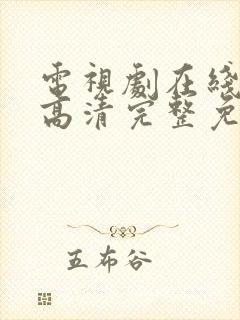 電視劇在綫
高清完整免
五布谷